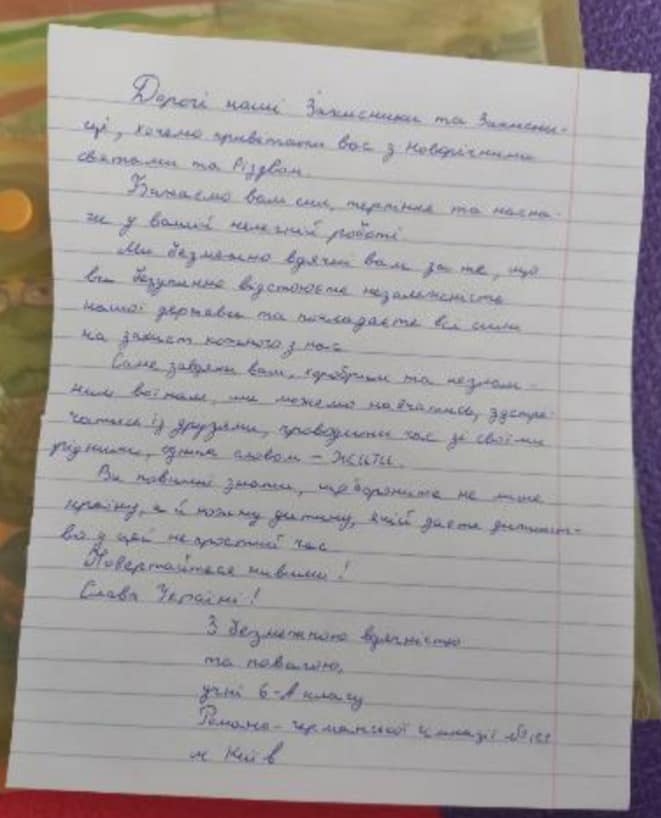 Дорогі наші Захисники та Захисни-
ці, хочемо привітати вас з Новорічними
святами та Різдвом.
Бажаємо вам сил, терпіння та насна-
ги у вашій нелегкій роботі
Ми безмежно вдячні вам за те, що
ви безупинно відстоюєте незалежність
нашої держави та покладаєте всі сили
на захист кожного з нас
Саме завдяки вам, хоробрим та незлам-
ним воїнам, ми можемо навчатись, зустрі-
чатись із друзями, проводити час зі своїми
рідними, одним словом – ЖИТИ.
Ви повинні знати, що бороните не лише
країну, а й кожну дитину, якій даєте дитинст-
во у цей непростий час
Повертайтеся живими!
Слава Україні!
З безмежною вдячністю
та повагою,
учні 6-А класу
Романо-германської гімназії №123
м Київ